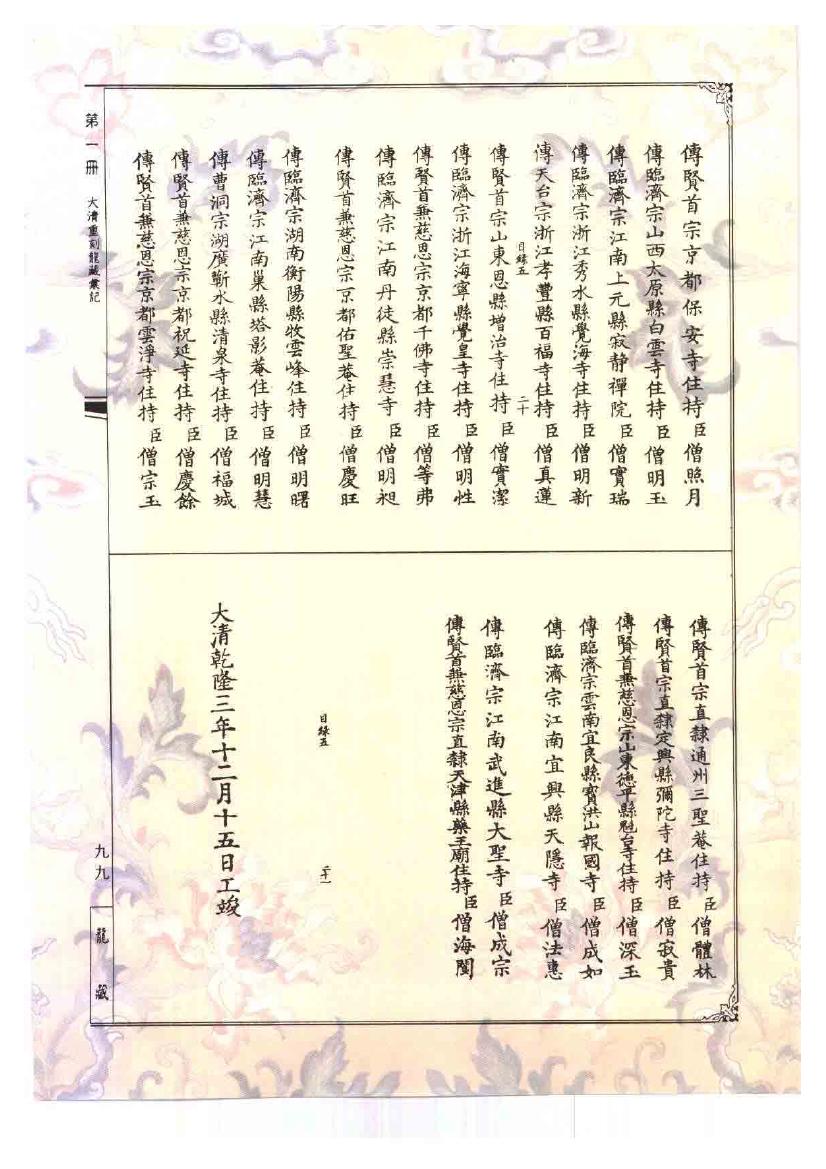 傳賢首宗京都保安寺住持臣僧照月
傳臨濟宗山西太原縣白雲寺住持臣僧明玉
傳臨濟宗江南上元縣寂静禪院臣僧實瑞
傳臨濟宗浙江秀水縣覺海寺住持臣僧明新
傳天台宗浙江孝豐縣百福寺住持臣僧真蓮
目録五 二十
傳賢首宗山東恩縣增治寺住持臣僧實潔
傳臨濟宗浙江海寧縣覺皇寺住持臣僧明性
傳賢首兼慈恩宗京都千佛寺住持臣僧等弗
傳臨濟宗江南丹徒縣崇慧寺臣僧明昶
傳賢首兼慈恩宗京都佑聖菴住持臣僧慶旺
傳臨濟宗湖南衡陽縣牧雲峰住持臣僧明曙
傳臨濟宗江南巢縣塔影菴住持臣僧明慧
傳曹洞宗湖廣蘄水縣清泉寺住持臣僧福城
傳賢首兼慈恩宗京都祝延寺住持臣僧慶餘
傳賢首兼慈恩宗京都雲淨寺住持臣僧宗玉
傳賢首宗直隸通州三聖菴住持臣僧體林
傳賢首宗直隸定興縣彌陀寺住持臣僧寂貴
傳賢首兼慈恩宗山東德平縣魁台寺住持臣僧深玉
傳臨濟宗雲南宜良縣寶洪山報國寺臣僧成如
傳臨濟宗江南宜興縣天隱寺臣僧法惠
傳臨濟宗江南武進縣大聖寺臣僧成宗
傳賢首兼慈恩宗直隸天津縣藥王廟住持臣僧海闊
目録五 二十一
大清乾隆三年十二月十五日工竣
第一冊 大清重刻龍藏彙記
九九 龍藏